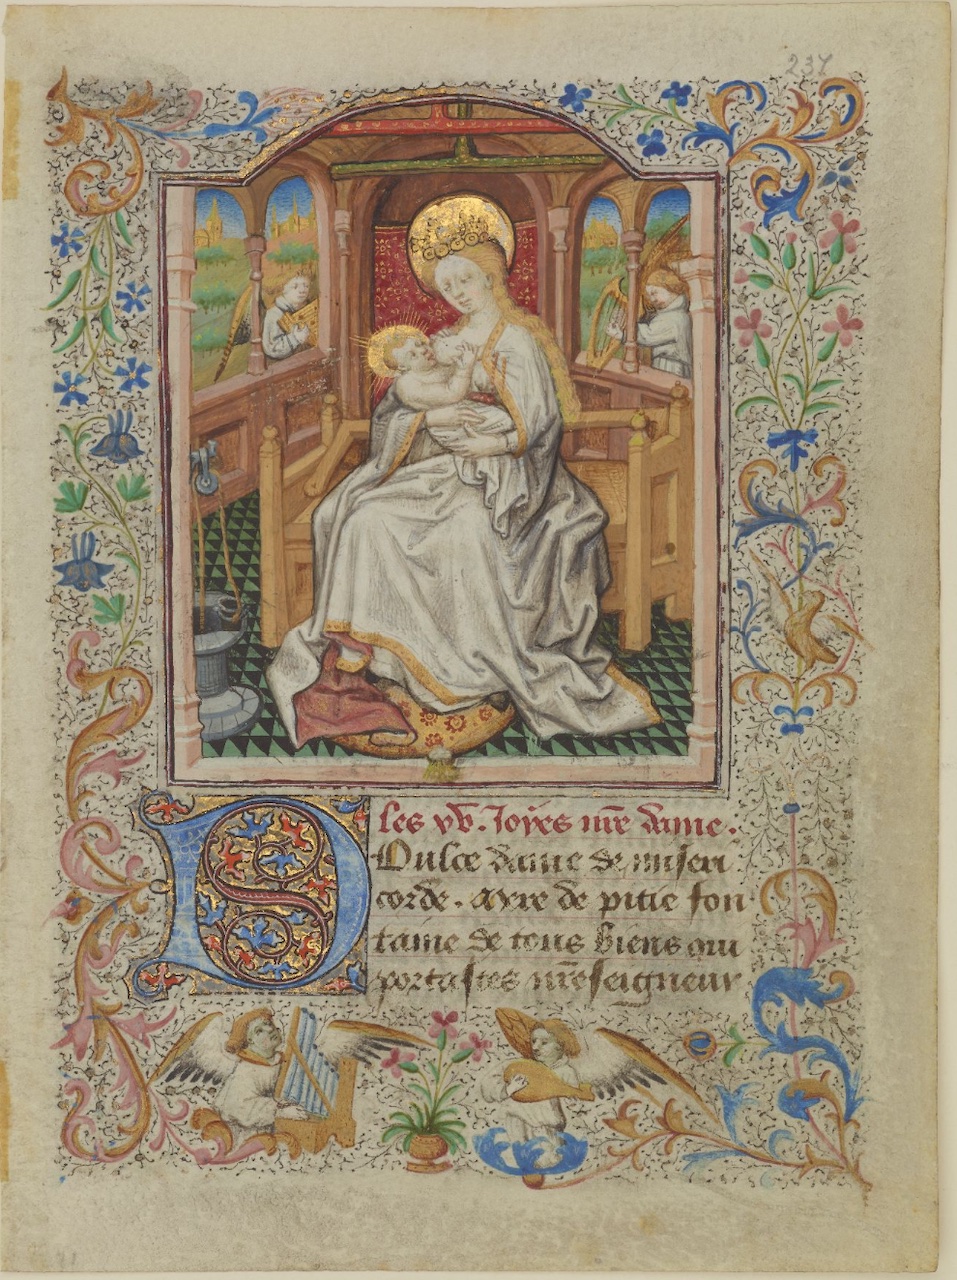 237
les xv. Joyes nr̄e dame.
Dulce dame de miseri
corde. mere de pitie fon
taine de tous biens qui
portastes nr̄eseigneur